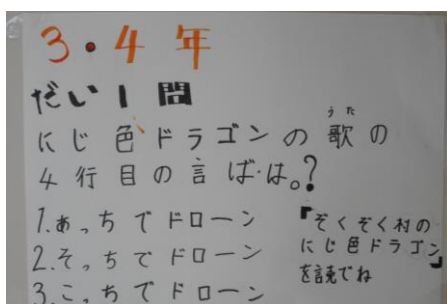 3・4年
だい1問
にじ色ドラゴンの歌の
うた
4行目の言ば・は。?
1.あっちでドローン
2.そっちでドローン
3.こっちでドローン
『ぞくぞく村の
にじ色ドラゴン』
を読んでね